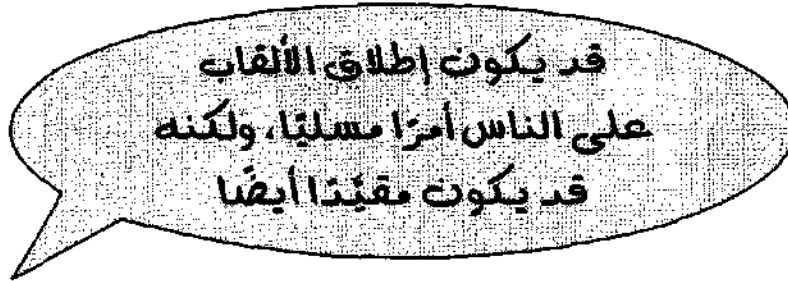 قد يكون إطلاق الألقاب
على الناس أمرًا مسليًا، ولكنه
قد يكون مقيّدًا أيضًا